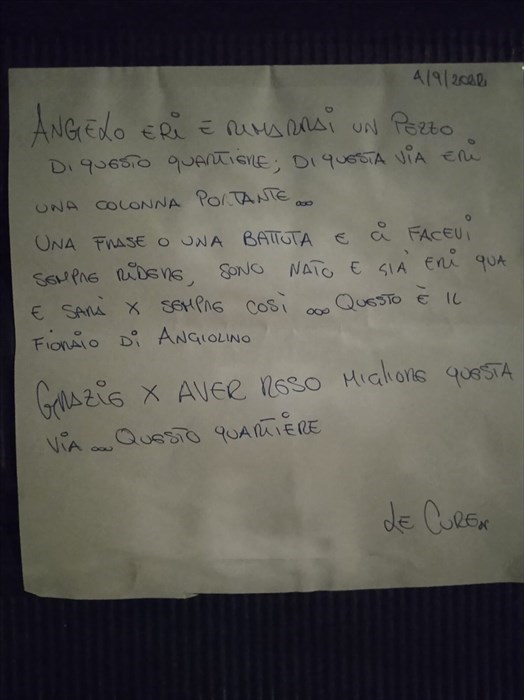 4/9/2022
ANGELO ERI E RIMARRAI UN PEZZO
DI QUESTO QUARTIERE; DI QUESTA VIA ERI
UNA COLONNA PORTANTE...
UNA FRASE O UNA BATTUTA E CI FACEVI
SEMPRE RIDERE, SONO NATO E GIÀ ERI QUA
E SARÀ X SEMPRE COSÌ ... QUESTO È IL
FIORAIO DI ANGIOLINO
GRAZIE X AVER RESO MIGLIORE QUESTA
VIA ... QUESTO QUARTIERE
LE CURE